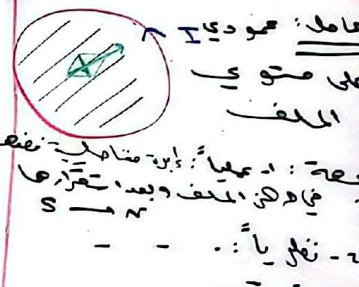 الحامل: عمودي I
على مستوي
الملف
جهة: 1- عملياً: إبرة مغناطيسية نضعها
في مركز الملف وبعد استقرارها
S → N
2- نظرياً: . - -